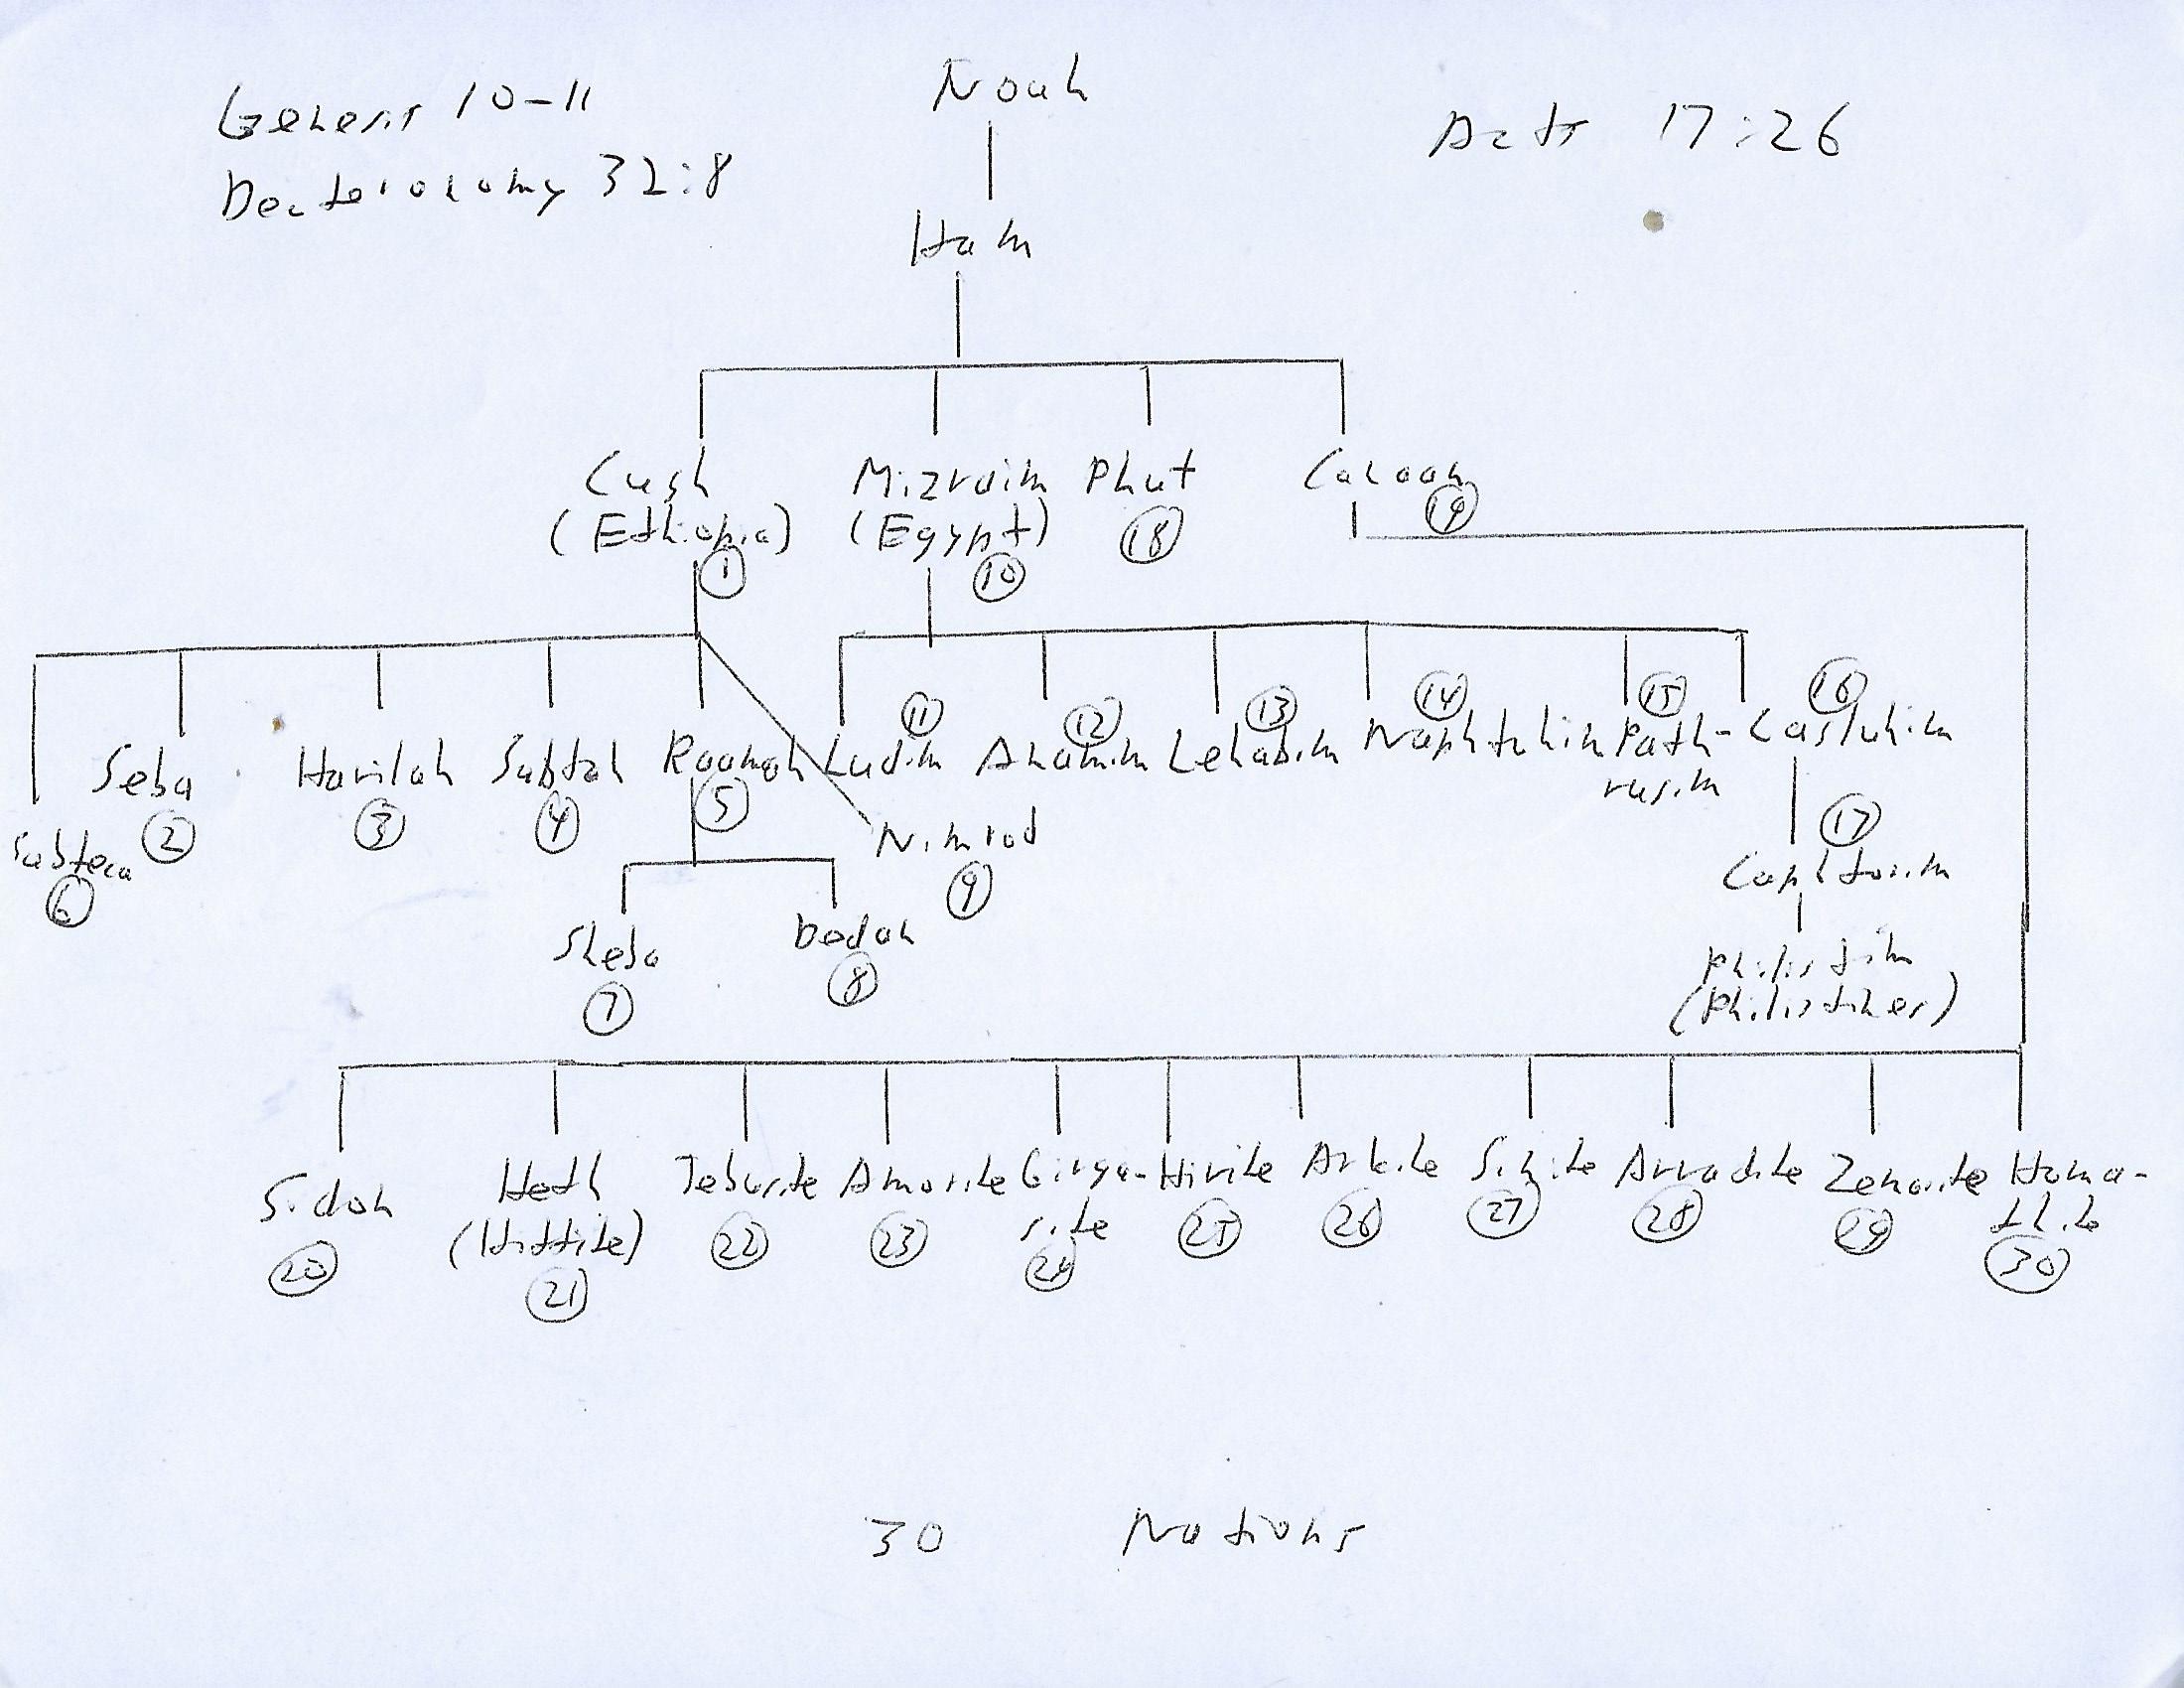 Genesis 10-11
Deuteronomy 32:8
Noah
Acts 17:26
Ham
Cush
(Ethiopia)
1
Mizraim
(Egypt)
10
Phut
18
Canaan
19
Sabteca
6
Seba
2
Havilah
3
Sabtah
4
Raamah
5
Nimrod
9
Sheba
7
Dedan
8
11
Ludim
12
Anamim
13
Lehabim
14
Naphtuhim
15
Path-
rusim
16
Casluhim
17
Caphtorim
Philistim
(Philistines)
Sidon
20
Heth
(Hittite)
21
Jebusite
22
Amorite
23
Girga-
site
24
Hivite
25
Arkite
26
Sinite
27
Arvadite
28
Zemarite
29
Hama-
thite
30
30 Nations